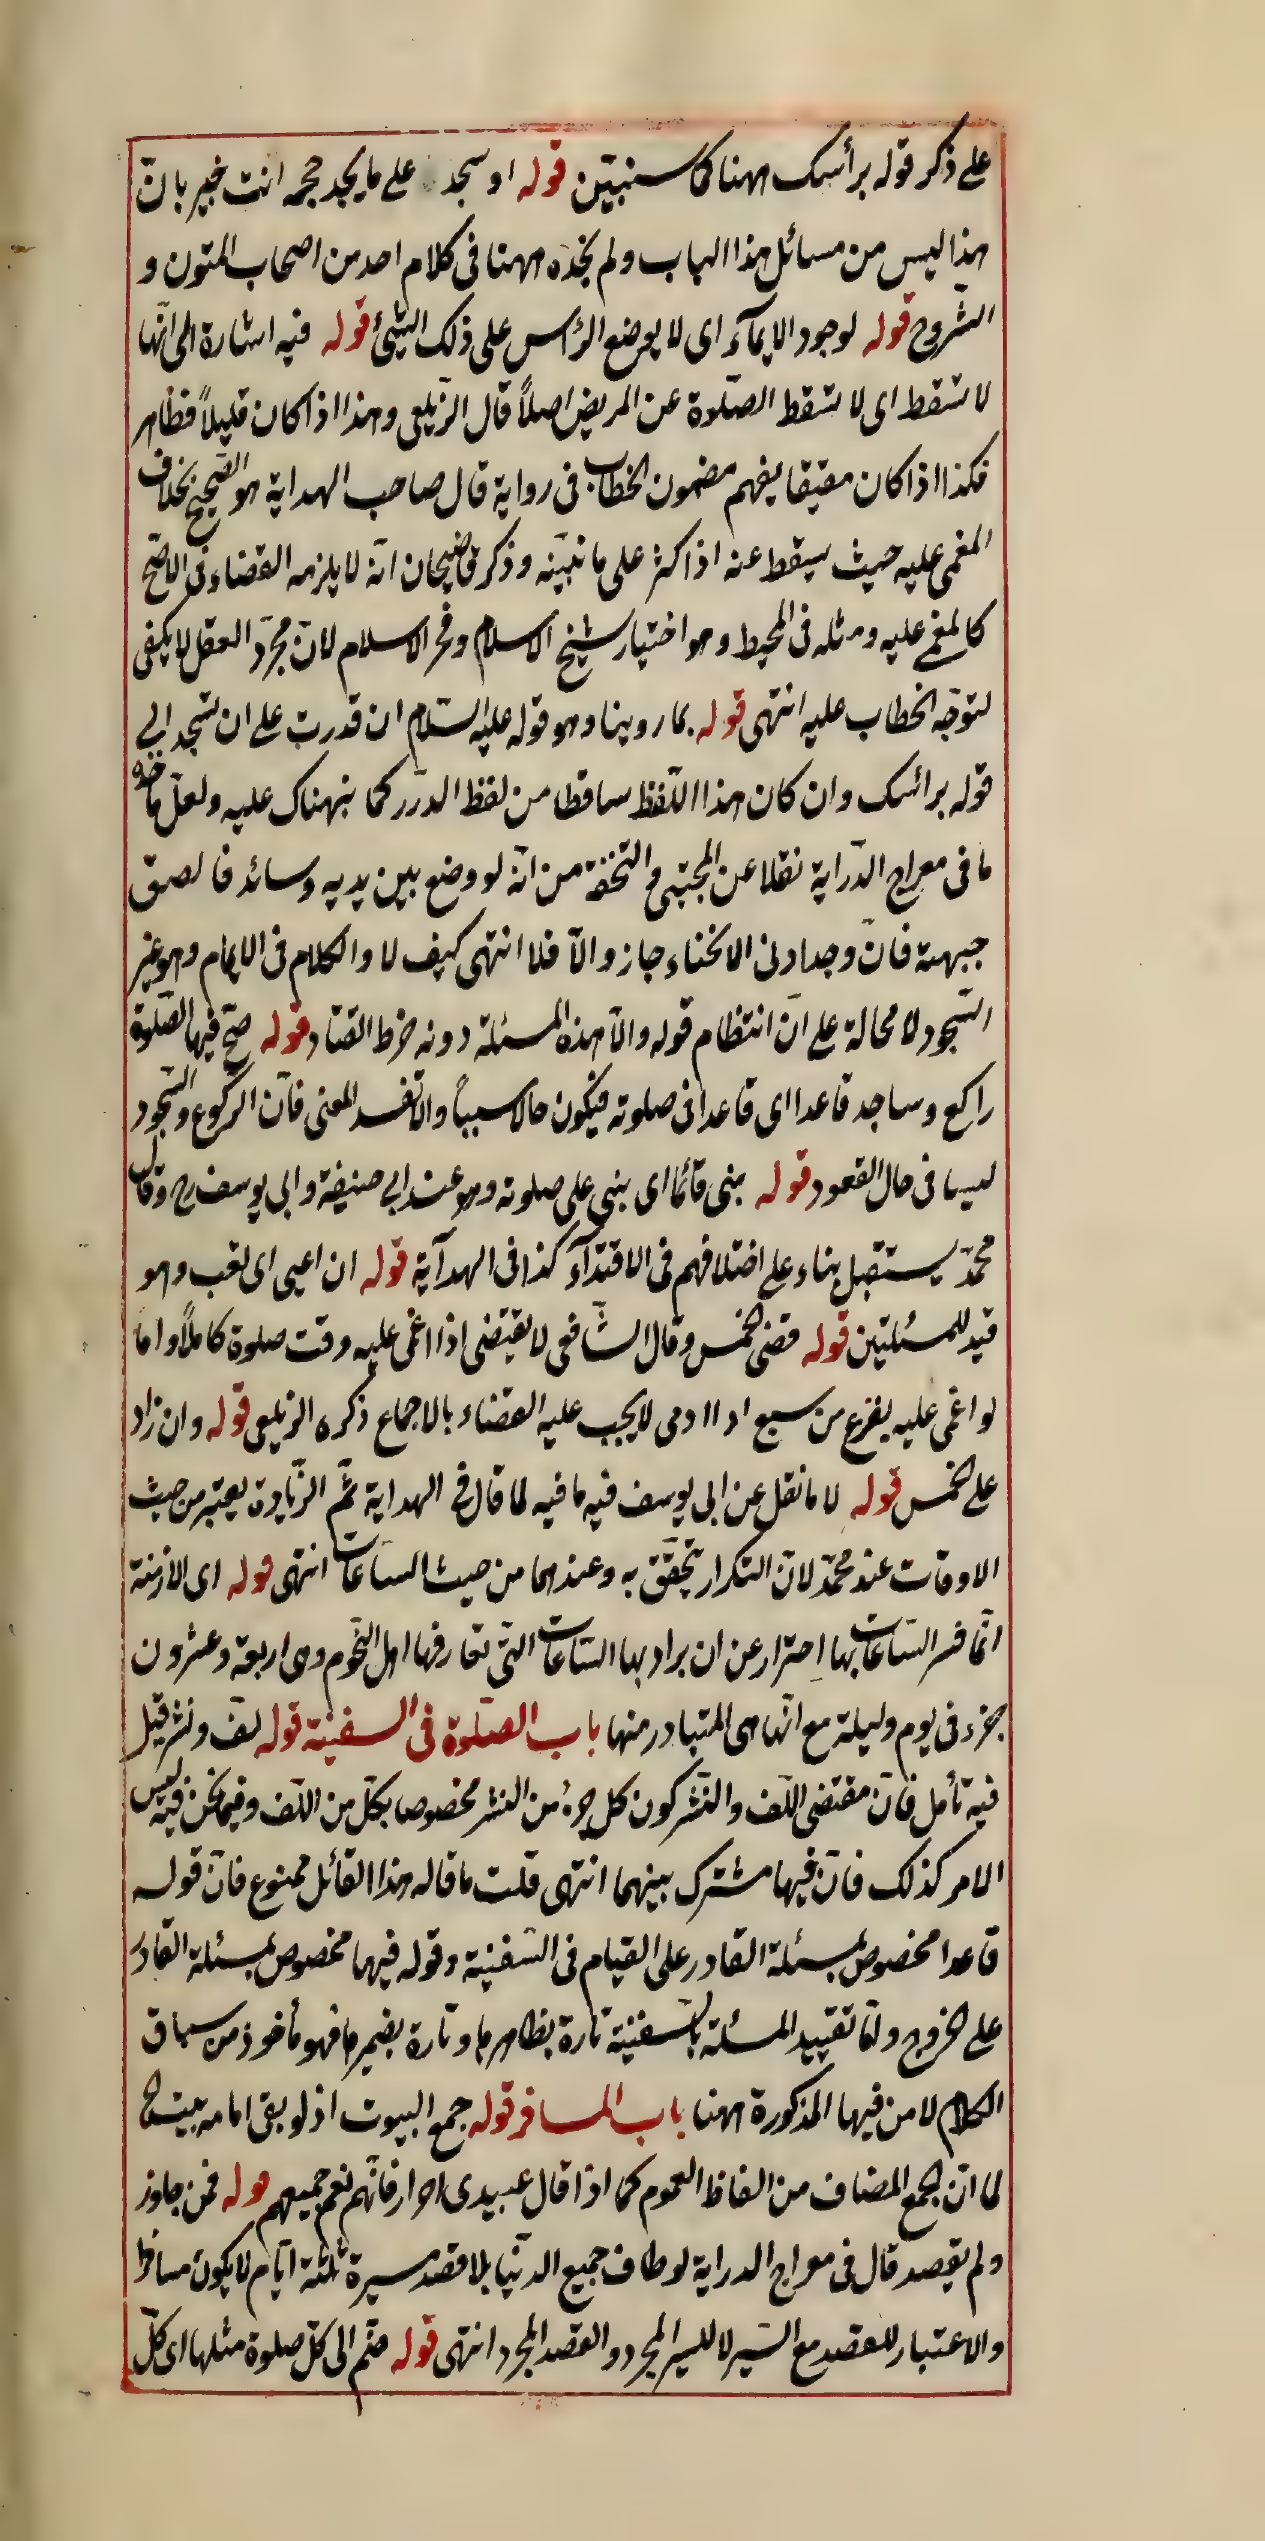 على ذكر قوله برأسك ههنا كما سنبيّن قوله او سجد على ما يجد حجمه انت خبير بانّ
هذا ليس من مسائل هذا الباب ولم نجده ههنا فى كلام احد من اصحاب المتون و
الشّروح قوله لوجود الايمآء اى لا لوضع الرأس على ذلك الشيئ قوله فيه اشارة الى انّها
لا تسقط اى لا تسقط الصّلوة عن المريض اصلاً قال الزّيلعى وهذا اذا كان قليلاً فظاهر
فكذا اذا كان مفيقا يفهم مضمون الخطاب فى رواية قال صاحب الهداية هو الصّحيح بخلاف
المغمى عليه حيث يسقط عنه اذا كثر على ما نبيّنه وذكر قاضيخان انّه لا يلزمه القضاء فى الاصّح
كالمغمى عليه ومثله فى المحيط وهو اختيار شيخ الاسلام وفخر الاسلام لانّ مجرّد العقل لا يكفى
لتوجّه الخطاب عليه انتهى قوله بما روينا وهو قوله عليه السّلام ان قدرت على ان تسجد الى
قوله برائسك وان كان هذا اللّفظ ساقطا من لفظ الدّرر كما نبهناك عليه ولعلّ مأخذه
ما فى معراج الدّراية نقلا عن المجتبى والتحفة من انّه لو وضع بين يديه وسائد فالصق
جبهته فانّ وجد ادنى الانحناء جاز والاّ فلا انتهى كيف لا والكلام فى الايمام وهو غير
السّجود لا محالة على انّ انتظام قوله والاّ هذه المسئلة دونه خرط القتاد قوله صحّ فيها الصّلوة
راكع وساجد قاعدا اى قاعدا فى صلوته فيكون حالا سببيّاً والا تفسد المعنى فانّ الرّكوع والسّجود
ليسا فى حال القعود قوله بنى قائما اى بنى على صلوته وهو عند ابى حنيفة وابى يوسف رح وقال
محمّد يستقبل بناء على اختلافهم فى الاقتدآء كذا فى الهدآية قوله ان اعيى اى تعب وهو
قيد للمسئلتين قوله قضى الخمس وقال الشّافعى لا يقتضى اذا اغمى عليه وقت صلوة كاملاً واما
لو اغمى عليه بفزع من سبع او اادمى لا يجب عليه القضاء بالاجماع ذكره الزيلعى قوله وان زاد
على الخمس قوله لا ما نقل عن ابى يوسف فيه ما فيه لما قال فى الهداية ثمّ الزّيادة يعتبر من حيث
الاوقات عند محمّد لانّ التكرار يتحقّق به وعندهما من حيث السّاعات انتهى قوله اى الازمنة
انّما فسر السّاعات بها احترار عن ان يراد بها السّاعات التّى تعارفها اهل النّجوم وهى اربعة وعشرون
جزء فى يوم وليلة مع انّها هى المتبادر منها باب الصّلوة فى السفينة قوله لفّ ونشر قيل
فيه تأمل فانّ مقتضى اللّف والنّشر كون كل جزء من النشر مخصوصا بكلّ من اللّف وفيما نحن فيه ليس
الامر كذلك فانّ فيها مشترك بينهما انتهى قلت ما قاله هذا القائل ممنوع فانّ قوله
قاعدا مخصوص بمسئلة القادر على القيام فى السّفينة وقوله فيها مخصوص بمسئلة القادر
على الخروج وامّا تقييد المسئلة بالسّفينة تارة بظاهرها وتارة بضميرها فهو مأخوذ من سياق
الكلام لا من فيها المذكورة ههنا باب المسافر قوله جمع البيوت اذ لو بقى امامه بيت لا
لما انّ الجمع المضاف من الفاظ العموم كما اذا قال عبيدى احرار فانّهم نعم جميعهم قوله فمن جاوز
ولم يقصد قال فى معراج الدراية لو طاف جميع الدّنيا بلا قصد مسيرة ثلثة ايّام لا يكون مسافرا
والاعتبار للقصد مع السّير لا للسير المجرد والقصد المجرد انتهى قوله ضمّ الى كلّ صلوة مثلها اى كلّ